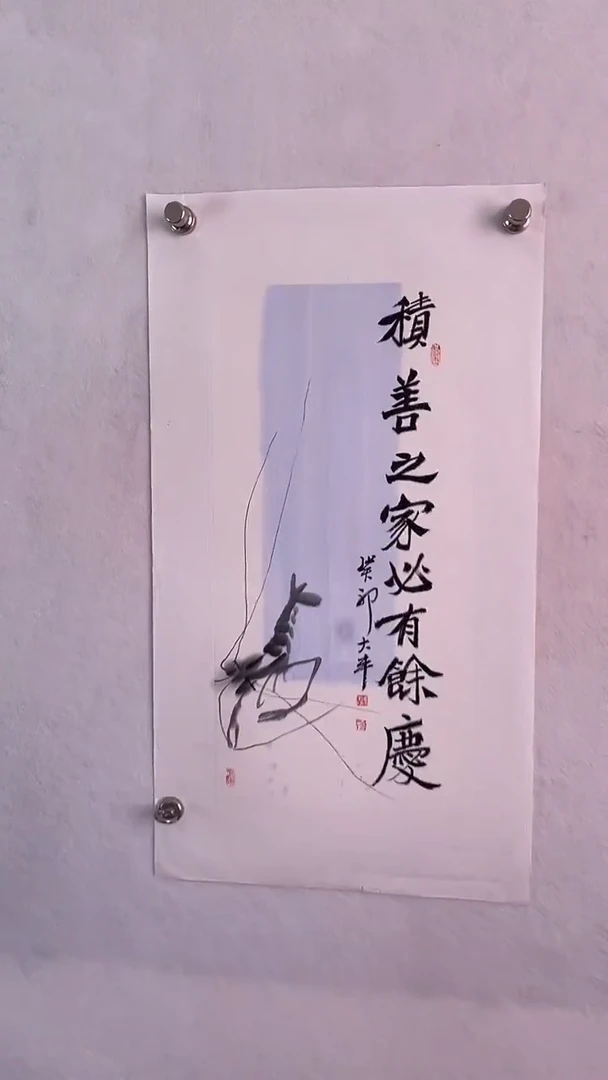 積善之家必有餘慶
癸卯大年